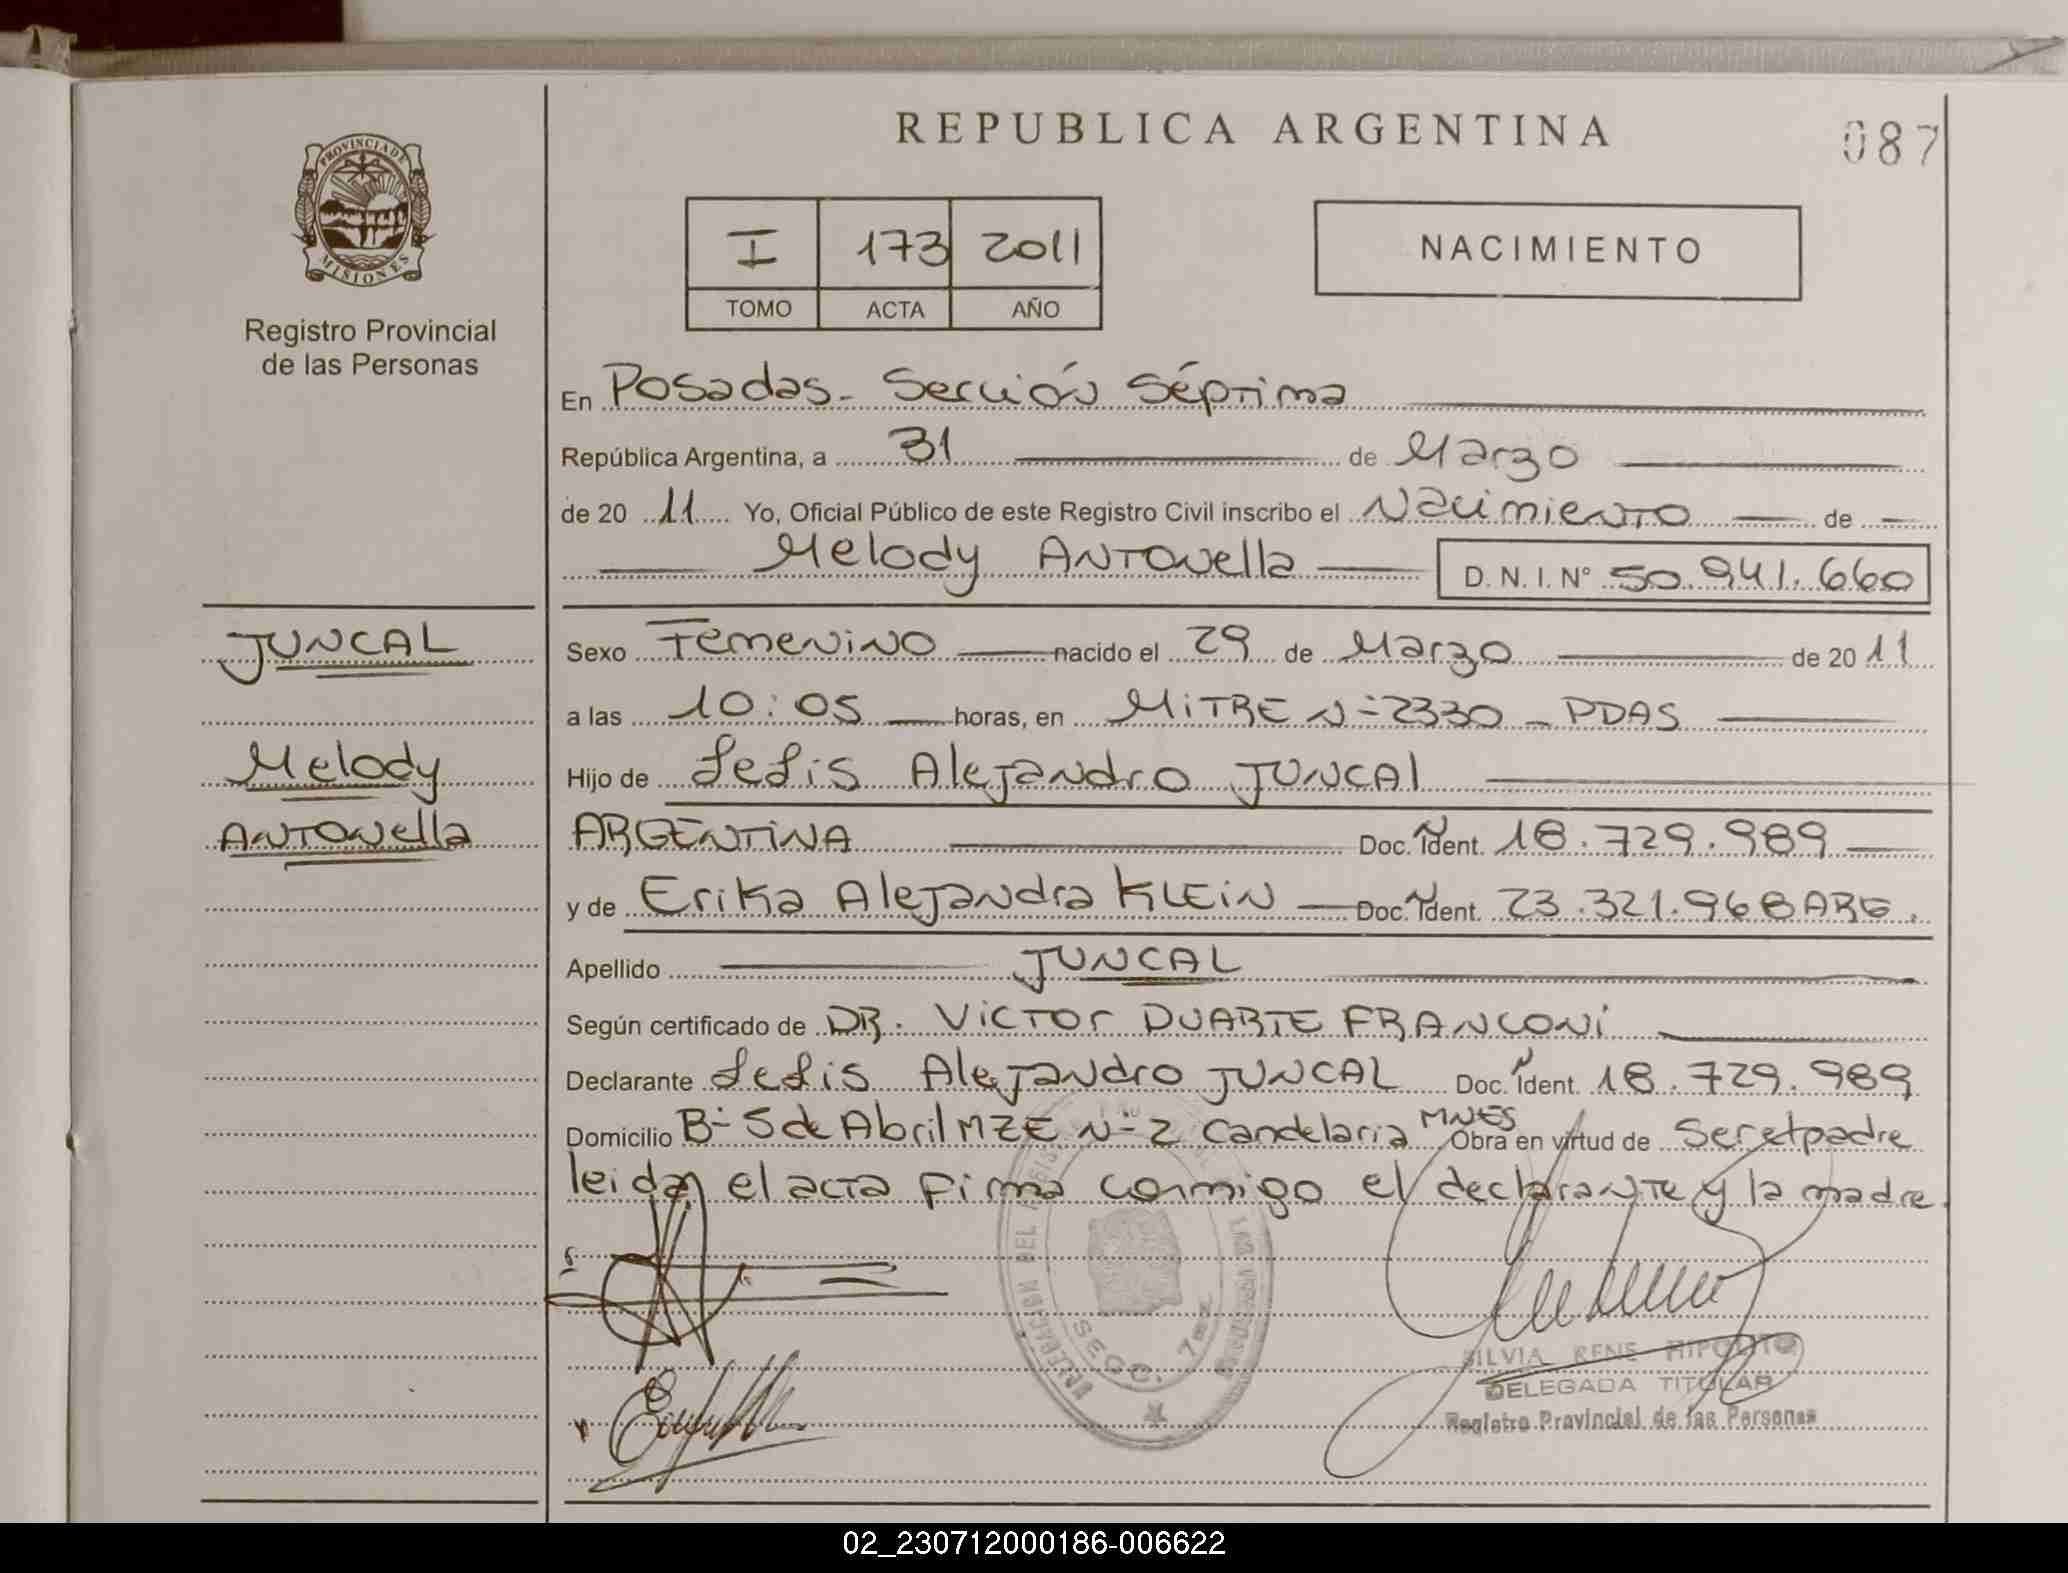 REPUBLICA ARGENTINA
087
PROVINCIA DE
MISIONES
Registro Provincial
de las Personas
I 173 2011
TOMO ACTA AÑO
NACIMIENTO
En Posadas - Sección Séptima
República Argentina, a 31 de Marzo
de 20 11 Yo, Oficial Público de este Registro Civil inscribo el Nacimiento de
Melody Antonella D. N. I. N° 50.941.660
JUNCAL
Melody
Antonella
Sexo Femenino nacido el 29 de Marzo de 20 11
a las 10:05 horas, en MITRE N=2330 - PDAS
Hijo de Alejandro JUNCAL
ARGENTINA Doc. Ident. 18.729.989
y de Erika Alejandra KLEIN Doc. Ident. 23.321.968 ARG.
Apellido JUNCAL
Según certificado de DR. VICTOR DUARTE FRANCONI
Declarante Alejandro JUNCAL Doc. Ident. 18.729.989
Domicilio B= 5 de Abril MZ E N=2 Candelaria MNES Obra en virtud de ser el padre
leida el acta firma conmigo el declarante y la madre.
SECC. 7ma
SILVIA RENE HIPOLITO
DELEGADA TITULAR
Registro Provincial de las Personas
02_230712000186-006622